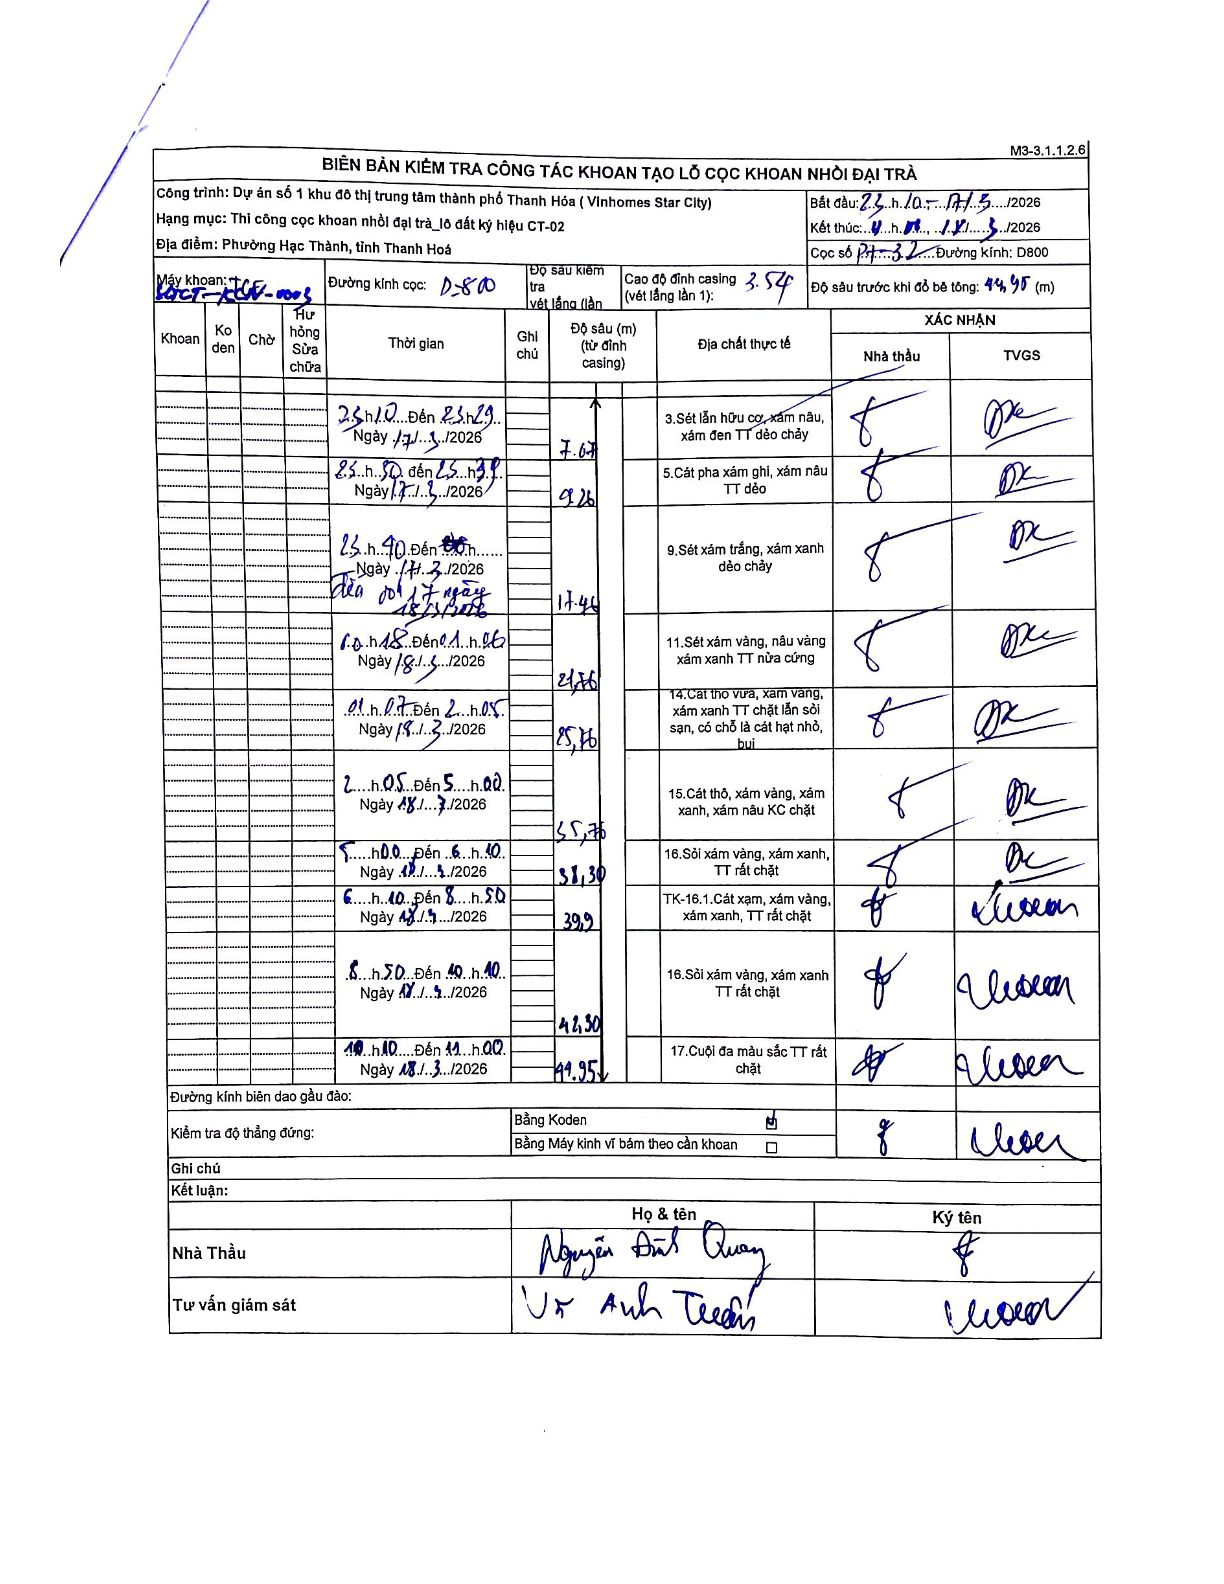 M3-3.1.1.2.6
BIÊN BẢN KIỂM TRA CÔNG TÁC KHOAN TẠO LỖ CỌC KHOAN NHỒI ĐẠI TRÀ
Công trình: Dự án số 1 khu đô thị trung tâm thành phố Thanh Hóa ( Vinhomes Star City)
Hạng mục: Thi công cọc khoan nhồi đại trà_lô đất ký hiệu CT-02
Địa điểm: Phường Hạc Thành, tỉnh Thanh Hoá
Bắt đầu: 23..h.10....17/.3..../2026
Kết thúc:...h..., .18/....3.../2026
Cọc số P1-32....Đường kính: D800
Máy khoan:
Đường kính cọc: D-800
Độ sâu kiểm
tra
vét lắng (lần
Cao độ đỉnh casing
(vét lắng lần 1): 3.54
Độ sâu trước khi đổ bê tông: 44,95 (m)
Khoan
Ko
den
Chờ
Hư
hỏng
Sửa
chữa
Thời gian
Ghi
chú
Độ sâu (m)
(từ đỉnh
casing)
Địa chất thực tế
XÁC NHẬN
Nhà thầu
TVGS
23h10....Đến 23.h29..
Ngày .17/..3../2026
7.67
3.Sét lẫn hữu cơ, xám nâu,
xám đen TT dẻo chảy
23..h.30. đến 23..h39
Ngày 17../.3../2026
9.26
5.Cát pha xám ghi, xám nâu
TT dẻo
23..h..40.Đến h......
Ngày .17/..3../2026
Đến 00h17 ngày
18/3/2026
17.46
9.Sét xám trắng, xám xanh
dẻo chảy
00.h18..Đến01..h.06
Ngày 18./..3../2026
21,76
11.Sét xám vàng, nâu vàng
xám xanh TT nửa cứng
.01.h.07..Đến 2...h.05.
Ngày 18./..3../2026
25,76
14.Cát thô vừa, xám vàng,
xám xanh TT chặt lẫn sỏi
sạn, có chỗ là cát hạt nhỏ,
bụi
2....h.05...Đến 5....h.00.
Ngày 18./...3./2026
35,76
15.Cát thô, xám vàng, xám
xanh, xám nâu KC chặt
5.....h00...Đến ..6...h.10.
Ngày 18../..3../2026
38,30
16.Sỏi xám vàng, xám xanh,
TT rất chặt
6....h.10..Đến 8....h.50
Ngày 18./.3../2026
39,9
TK-16.1.Cát xạm, xám vàng,
xám xanh, TT rất chặt
.8...h.50...Đến 10..h.10..
Ngày 18./..3../2026
42,30
16.Sỏi xám vàng, xám xanh
TT rất chặt
.10..h10....Đến 11...h.00.
Ngày .18./..3.../2026
44.95
17.Cuội đa màu sắc TT rất
chặt
Đường kính biên dao gầu đào:
Kiểm tra độ thẳng đứng:
Bằng Koden
Bằng Máy kinh vĩ bám theo cần khoan
Ghi chú
Kết luận:
Họ & tên
Ký tên
Nhà Thầu
Nguyễn Đình Quang
Tư vấn giám sát
Vũ Anh Tuấn